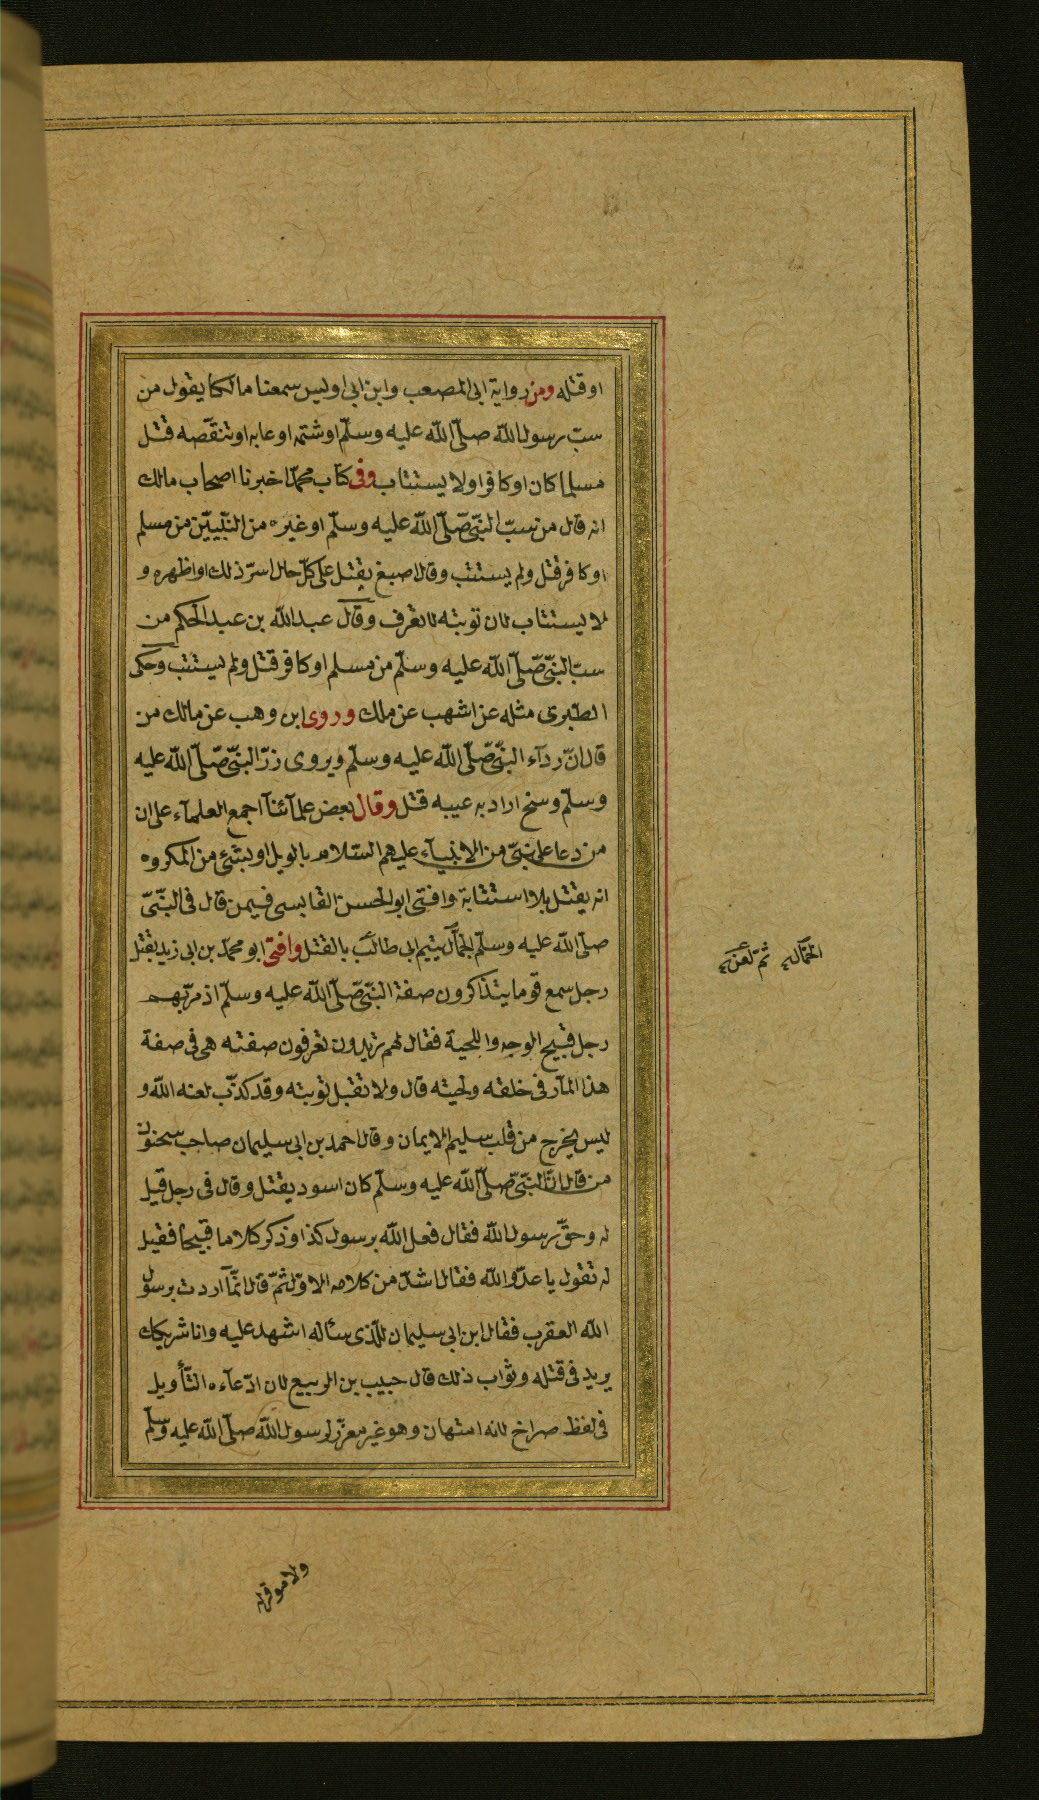 او قتله ومن رواية ابى المصعب وابن ابى اويس سمعنا مالكا يقول من
سبّ رسول الله صلّى الله عليه وسلّم او شتمه او عابه او تنقّصه قتل
مسلما كان او كافرا ولا يستتاب وفى كتاب محمّد اخبرنا اصحاب مالك
انه قال من سبّ النّبىّ صلّى الله عليه وسلّم او غيره من النّبيّين من مسلم
او كافر قتل ولم يستتب وقال اصبغ يقتل على كلّ حال اسرّ ذلك او اظهره و
لا يستتاب لان توبته لا تعرف وقال عبد الله بن عبد الحكم من
سبّ النّبىّ صلّى الله عليه وسلّم من مسلم او كافر قتل ولم يستتب وحكى
الطّبرى مثله عن اشهب عن ملك وروى ابن وهب عن مالك من
قال انّ ردآء النّبىّ صلّى الله عليه وسلّم ويروى زرّ النّبىّ صلّى الله عليه
وسلّم وسخ اراد به عيبه قتل وقال بعض علمآئنآ اجمع العلمآء على ان
من دعا على نبىّ من الانبيآء عليهم السّلام بالويل او بشئ من المكروه
انه يقتل بلا استتابة وافتى ابو الحسن القابسى فيمن قال فى النّبىّ
صلّى الله عليه وسلّم الجمّال يتيم ابى طالب بالقتل وافتى ابو محمّد بن ابى زيد بقتل
رجل سمع قوما يتذاكرون صفة النّبىّ صلّى الله عليه وسلّم اذ مرّ بهم
رجل قبيح الوجه واللحية فقال لهم تريدون تعرفون صفته هى فى صفة
هذا المآر فى خلقه ولحيته قال ولا تقبل توبته وقد كذب لعنه الله و
ليس يخرج من قلب سليم الايمان وقال احمد بن ابى سليمان صاحب سحنون
من قال انّ النّبىّ صلّى الله عليه وسلّم كان اسود يقتل وقال فى رجل قيل
له وحقّ رسول الله فقال فعل الله برسول كذا وذكر كلاما قبيحا فقيل
له تقول يا عدوّ الله فقال اشدّ من كلامه الاوّل ثمّ قال انّمآ اردت برسول
الله العقرب فقال ابن ابى سليمان للّذى سأله اشهد عليه وانا شريكك
يريد فى قتله وثواب ذلك قال حبيب بن الربيع لان ادّعآءه التّأويل
فى لفظ صراح لانه امتهان وهو غير معزّر لرسول الله صلّى الله عليه وسلّم
ولا موقر له